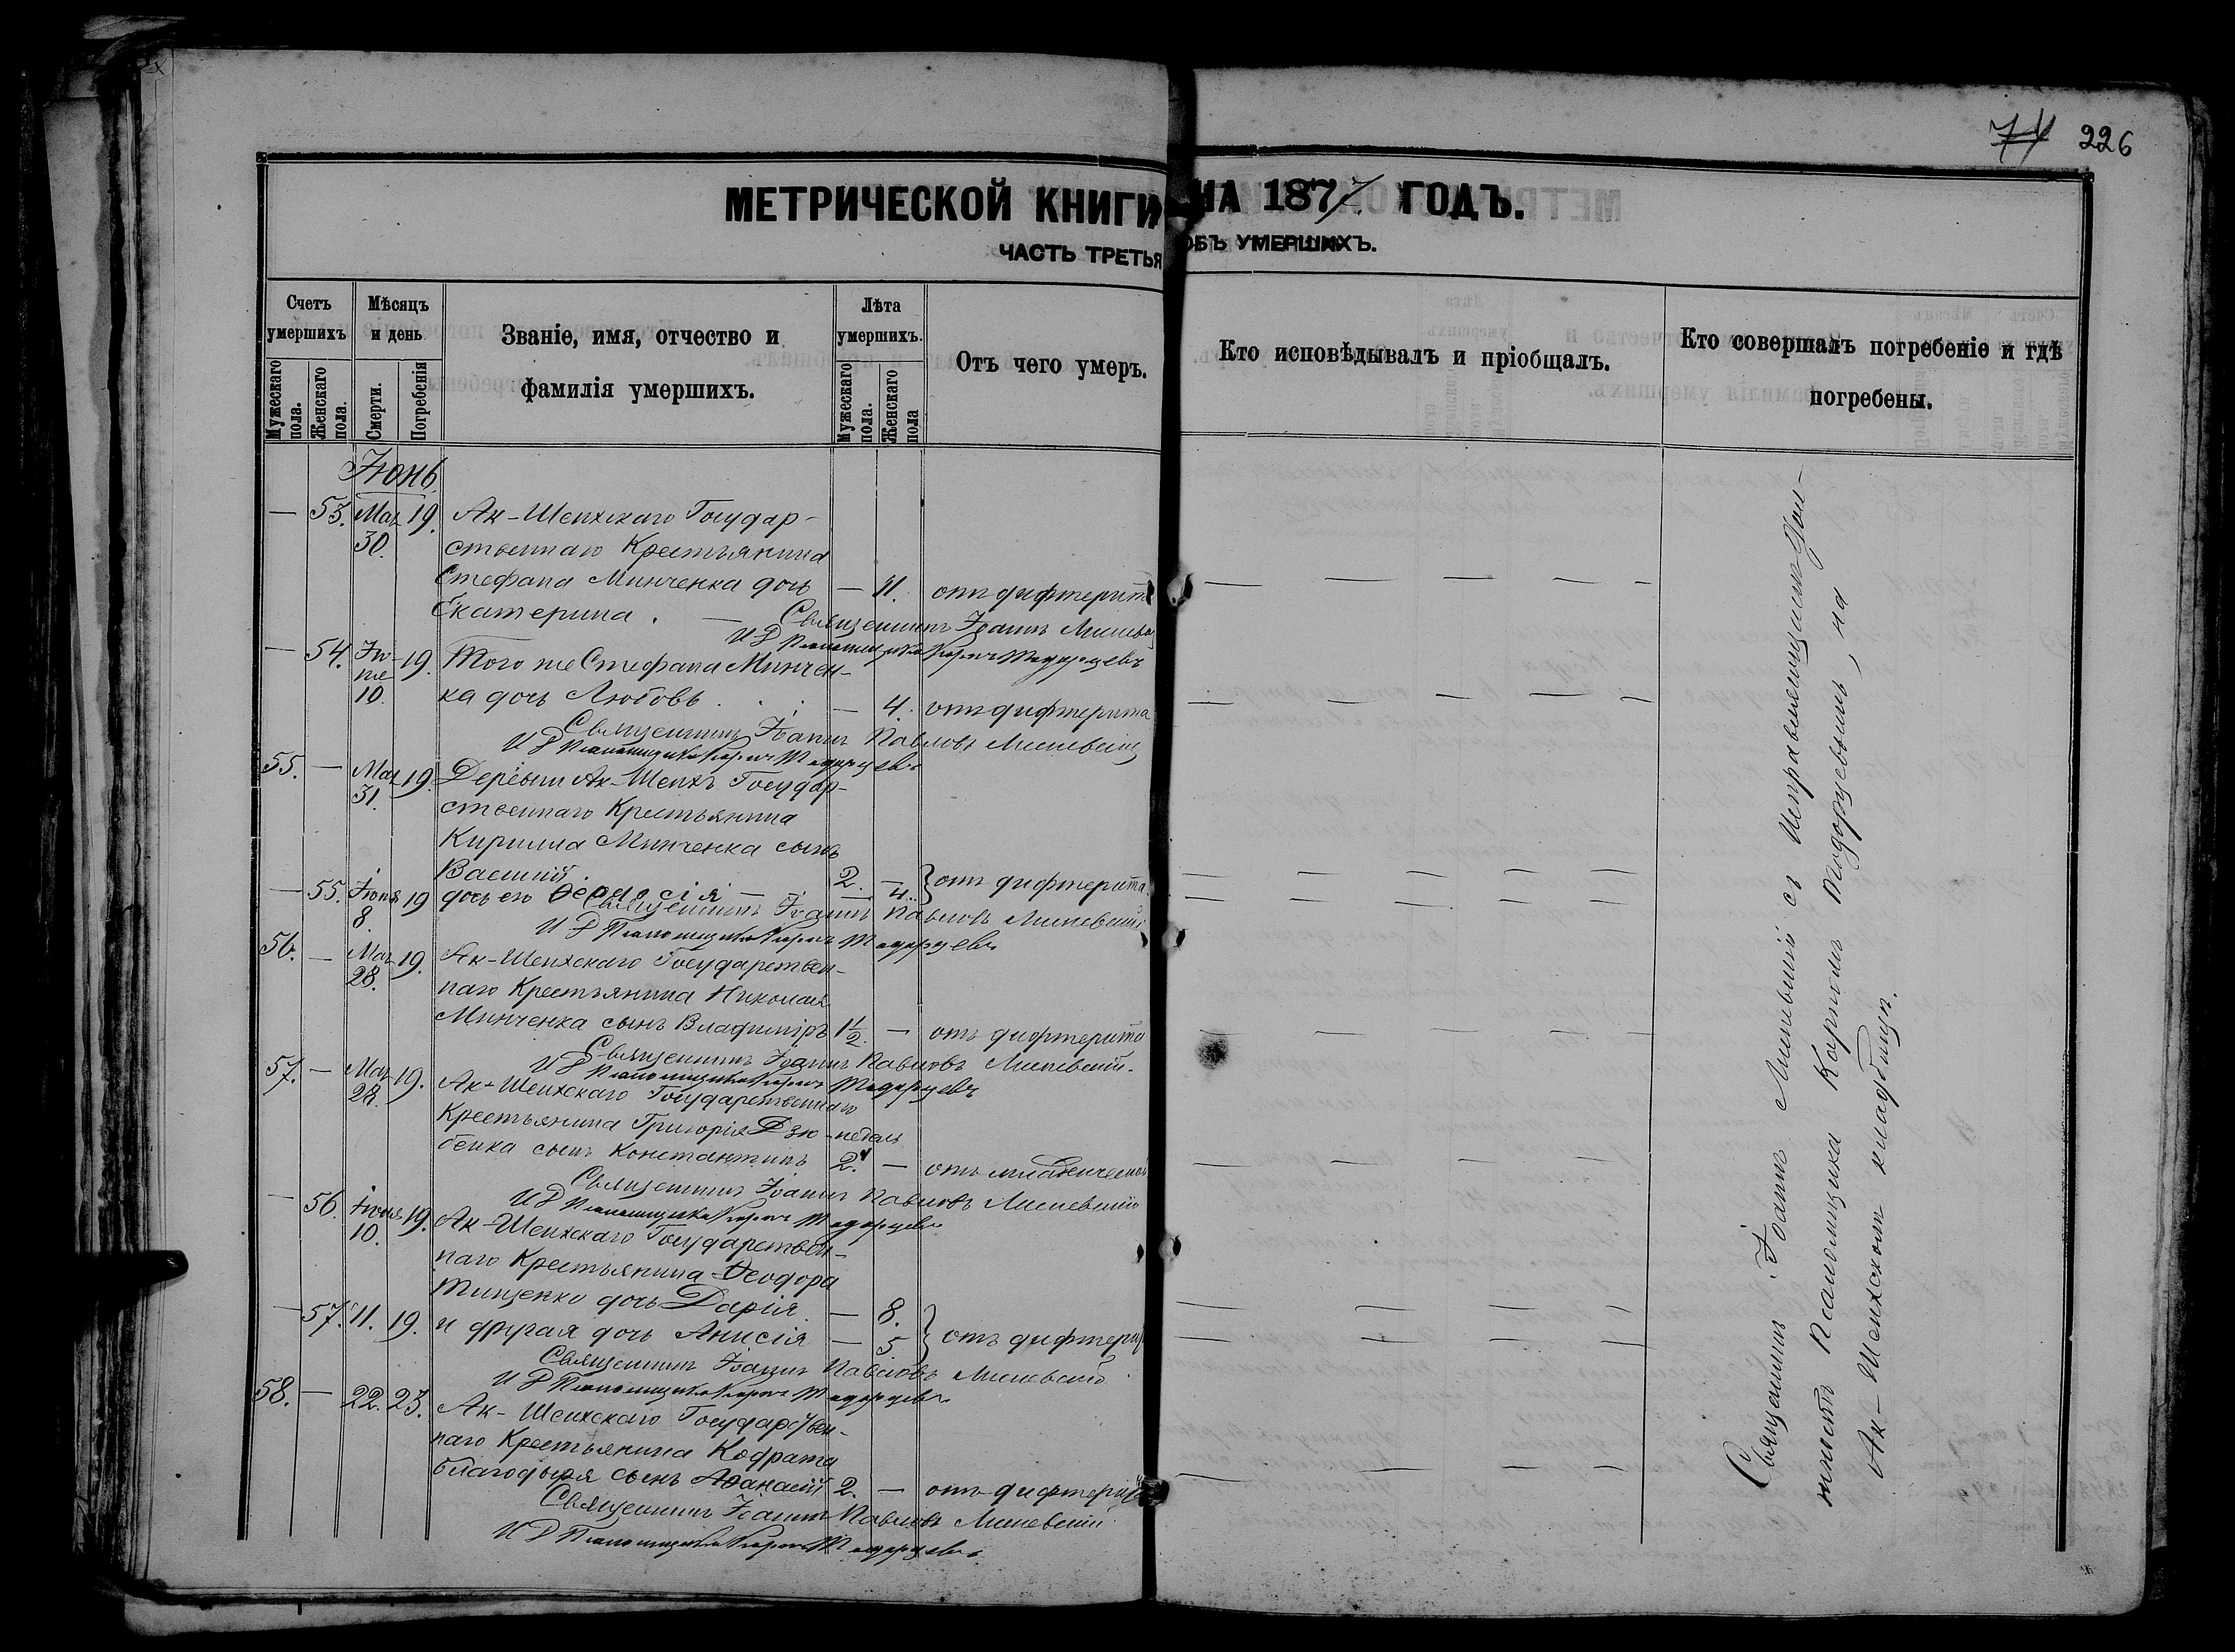 74 226
МЕТРИЧЕСКОЙ КНИГИ НА 1877 ГОДЪ.
ЧАСТЬ ТРЕТЬЯ ОБЪ УМЕРШИХЪ.
Счетъ умершихъ
Мужескаго пола.
Женскаго пола.
Мѣсяцъ и день
Смерти.
Погребенія
Званіе, имя, отчество и
фамилія умершихъ.
Лѣта умершихъ.
Мужескаго пола.
Женскаго пола
Отъ чего умеръ.
Кто исповѣдывалъ и пріобщалъ.
Кто совершалъ погребеніе и гдѣ
погребены.
Іюнь
— 53. Мая 19. Ак-Шеихскаго Государ-
30. ственнаго Крестьянина
Стефана Минченка дочь — 11. отъ дифтерита
Екатерина. — Священникъ Іоаннъ
И Д Псаломщика Карпъ Тодорцевъ
— 54. Ію- 19. Того же Стефана Минчен-
ня
10. ка дочь Любовь . . . — 4. отъ дифтерита
Священникъ Іоаннъ Павловъ
И Д Псаломщика Карпъ Тодорцевъ
55. — Мая 19. Деревни Ак-Шеихъ Государ-
31. ственнаго Крестьянина
Кирилла Минченка сынъ
Василій. 2. — отъ дифтерита.
— 55. Іюня 19 дочь его Ѳеодосія — — 4.
8. Священникъ Іоаннъ Павловъ
И Д Псаломщика Карпъ Тодорцевъ
56. — Мая 19. Ак-Шеихскаго Государствен-
28. наго Крестьянина Николая
Минченка сынъ Владиміръ 1½. — отъ дифтерита
Священникъ Іоаннъ Павловъ
И Д Псаломщика Карпъ Тодорцевъ
57. — Мая 19. Ак-Шеихскаго Государственнаго
28. Крестьянина Григорія Дзю- недель
бенка сынъ Константинъ 2. — отъ младенческой
Священникъ Іоаннъ Павловъ
И Д Псаломщика Карпъ Тодорцевъ
— 56. Іюня 19. Ак-Шеихскаго Государствен-
10. наго Крестьянина Ѳеодора
Тищенко дочь Дарія. — 8.
— 57. 11. 19. и другая дочь Анисія — 5 отъ дифтери
Священникъ Іоаннъ Павловъ
И Д Псаломщика Карпъ Тодорцевъ
58. — 22. 23. Ак-Шеихскаго Государствен-
наго Крестьянина Кодрата
благодыря сынъ Аѳанасій 2. — отъ дифтерита
Священникъ Іоаннъ Павловъ
И Д Псаломщика Карпъ Тодорцевъ
Священникъ Іоаннъ съ Исправляющимъ дол-
жность Псаломщика Карпомъ Тодорцевымъ, на
Ак-Шеихскомъ кладбищѣ.